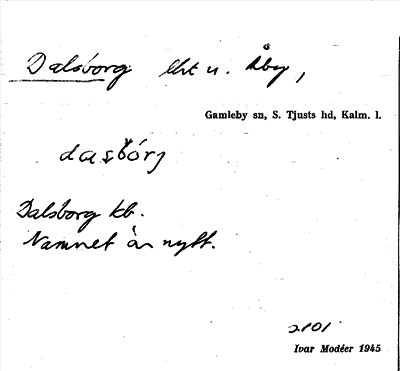 Dalsborg lht u. Åby,
Gamleby sn, S. Tjusts hd, Kalm. l.
dasbórj
Dalsborg kb.
Namnet är nytt.
2101
Ivar Modéer 1945